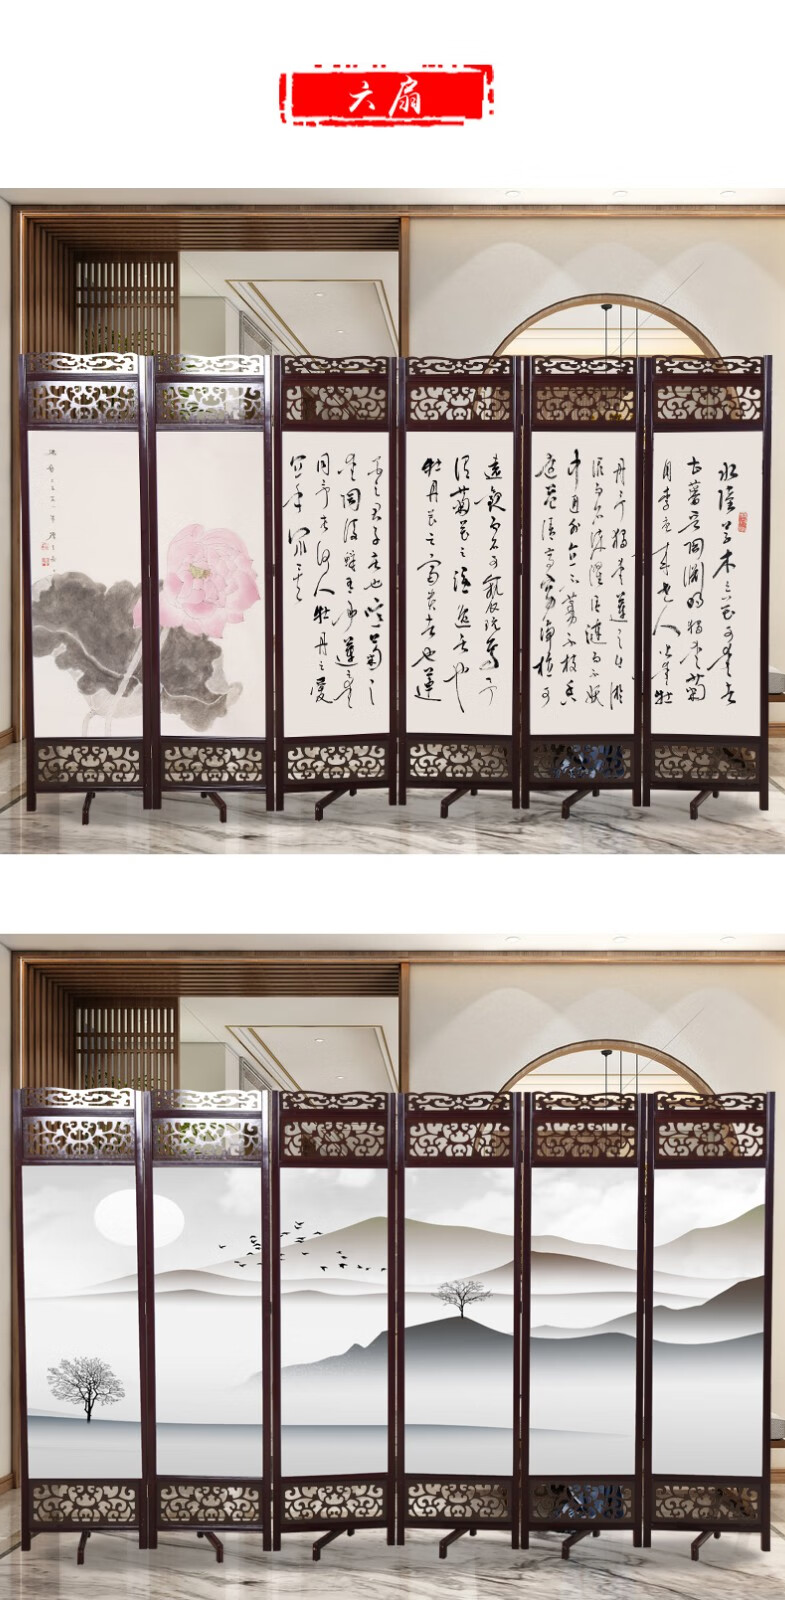 六扇
水陸草木之花可愛者
甚蕃晋陶淵明獨愛菊
自李唐来世人盛愛牡
丹予獨愛蓮之出淤
泥而不染濯清漣而不妖
中通外直不蔓不枝香
遠益清亭亭淨植可
遠觀而不可褻玩焉予
謂菊花之隱逸者也
牡丹花之富貴者也蓮
花之君子者也噫菊之
愛陶後鮮有聞蓮之愛
同予者何人牡丹之愛
宜乎衆矣